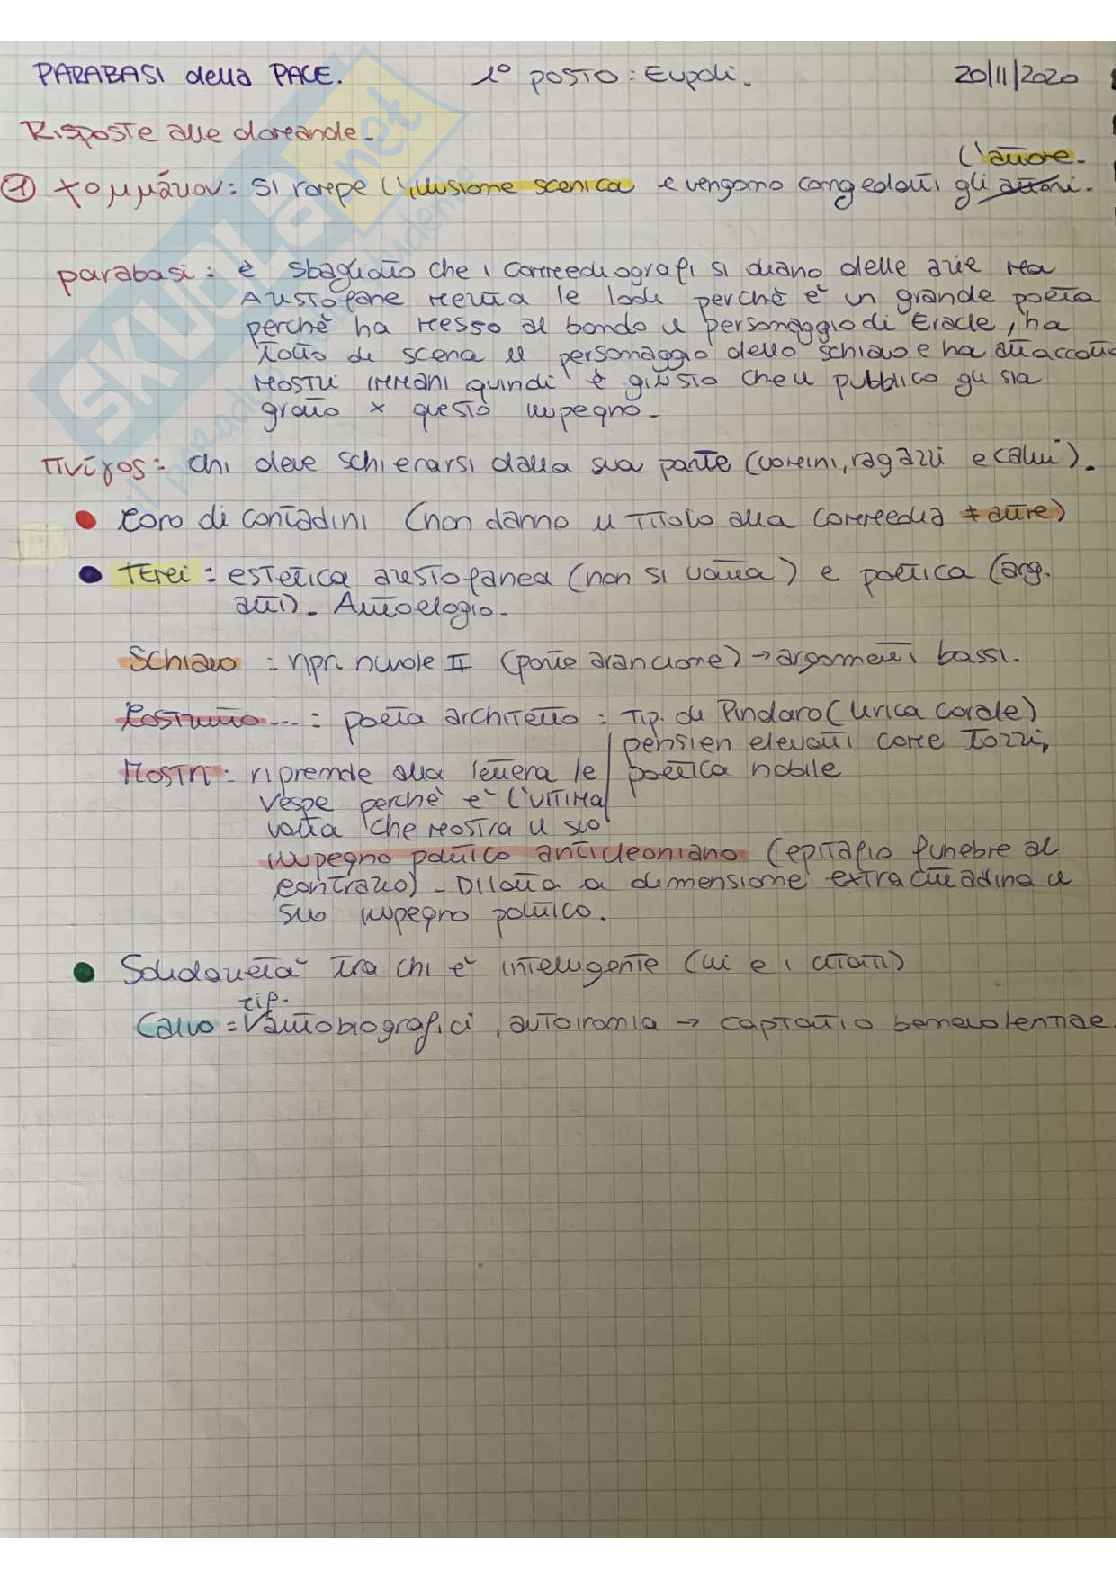 PARABASI della PACE. 1° POSTO: Eupoli. 20/11/2020
Risposte alle domande.
l'autore.
① κομμάτιον: si rompe l'illusione scenica e vengono congedati gli attori.
parabasi: è sbagliato che i commediografi si diano delle arie ma
Aristofane merita le lodi perchè è un grande poeta
perchè ha messo al bando il personaggio di Eracle, ha
tolto di scena il personaggio dello schiavo e ha attaccato
mostri immani quindi è giusto che il pubblico gli sia
grato x questo impegno.
πνῖγος: chi deve schierarsi dalla sua parte (uomini, ragazzi e calvi).
Coro di contadini (non danno il titolo alla commedia ≠ altre)
Temi: estetica aristofanea (non si vanta) e poetica (arg.
alti). Autoelogio.
Schiavo = ripr. nuvole II (parte arancione) → argomenti bassi.
Costruito ... : poeta architetto: tip. di Pindaro (lirica corale)
pensieri elevati come torri,
Mostri: riprende alla lettera le poetica nobile
Vespe perchè è l'ultima
volta che mostra il suo
impegno politico anticleoniano (epitafio funebre al
contrario). Dilata a dimensione extracittadina il
suo impegno politico.
Solidarietà tra chi è intelligente (lui e i )
tip.
Calvo = autobiografici, autoironia → captatio benevolentiae.
SKUOLA.net